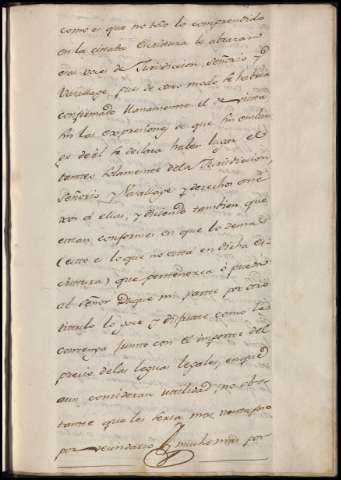 como es que no solo lo comprendido
en la citada Escritura le abrazan
las voces de Jurisdiccion, Señorio y
Vasallage, pues de otro modo le habria
confirmado llanamente el de
sin las expresiones de que sin embar
go de él se declara haber lugar el
tanteo solamente dela Jurisdiccion,
Señorio, y Vasallage y derechos
á ellas, y diciendo tambien que
estan conformes en que lo demas
(esto es lo que no está en dicha Es
critura) que pertenezca ó pueda
al Señor Duque mi parte por otro
titulo lo goce y disfrute como le
convenga junto con el importe del
precio delas leguas legales, en que
aun consideran utilidad, no obs
tante que les seria mas ventajoso
por secundario y mucho mas por